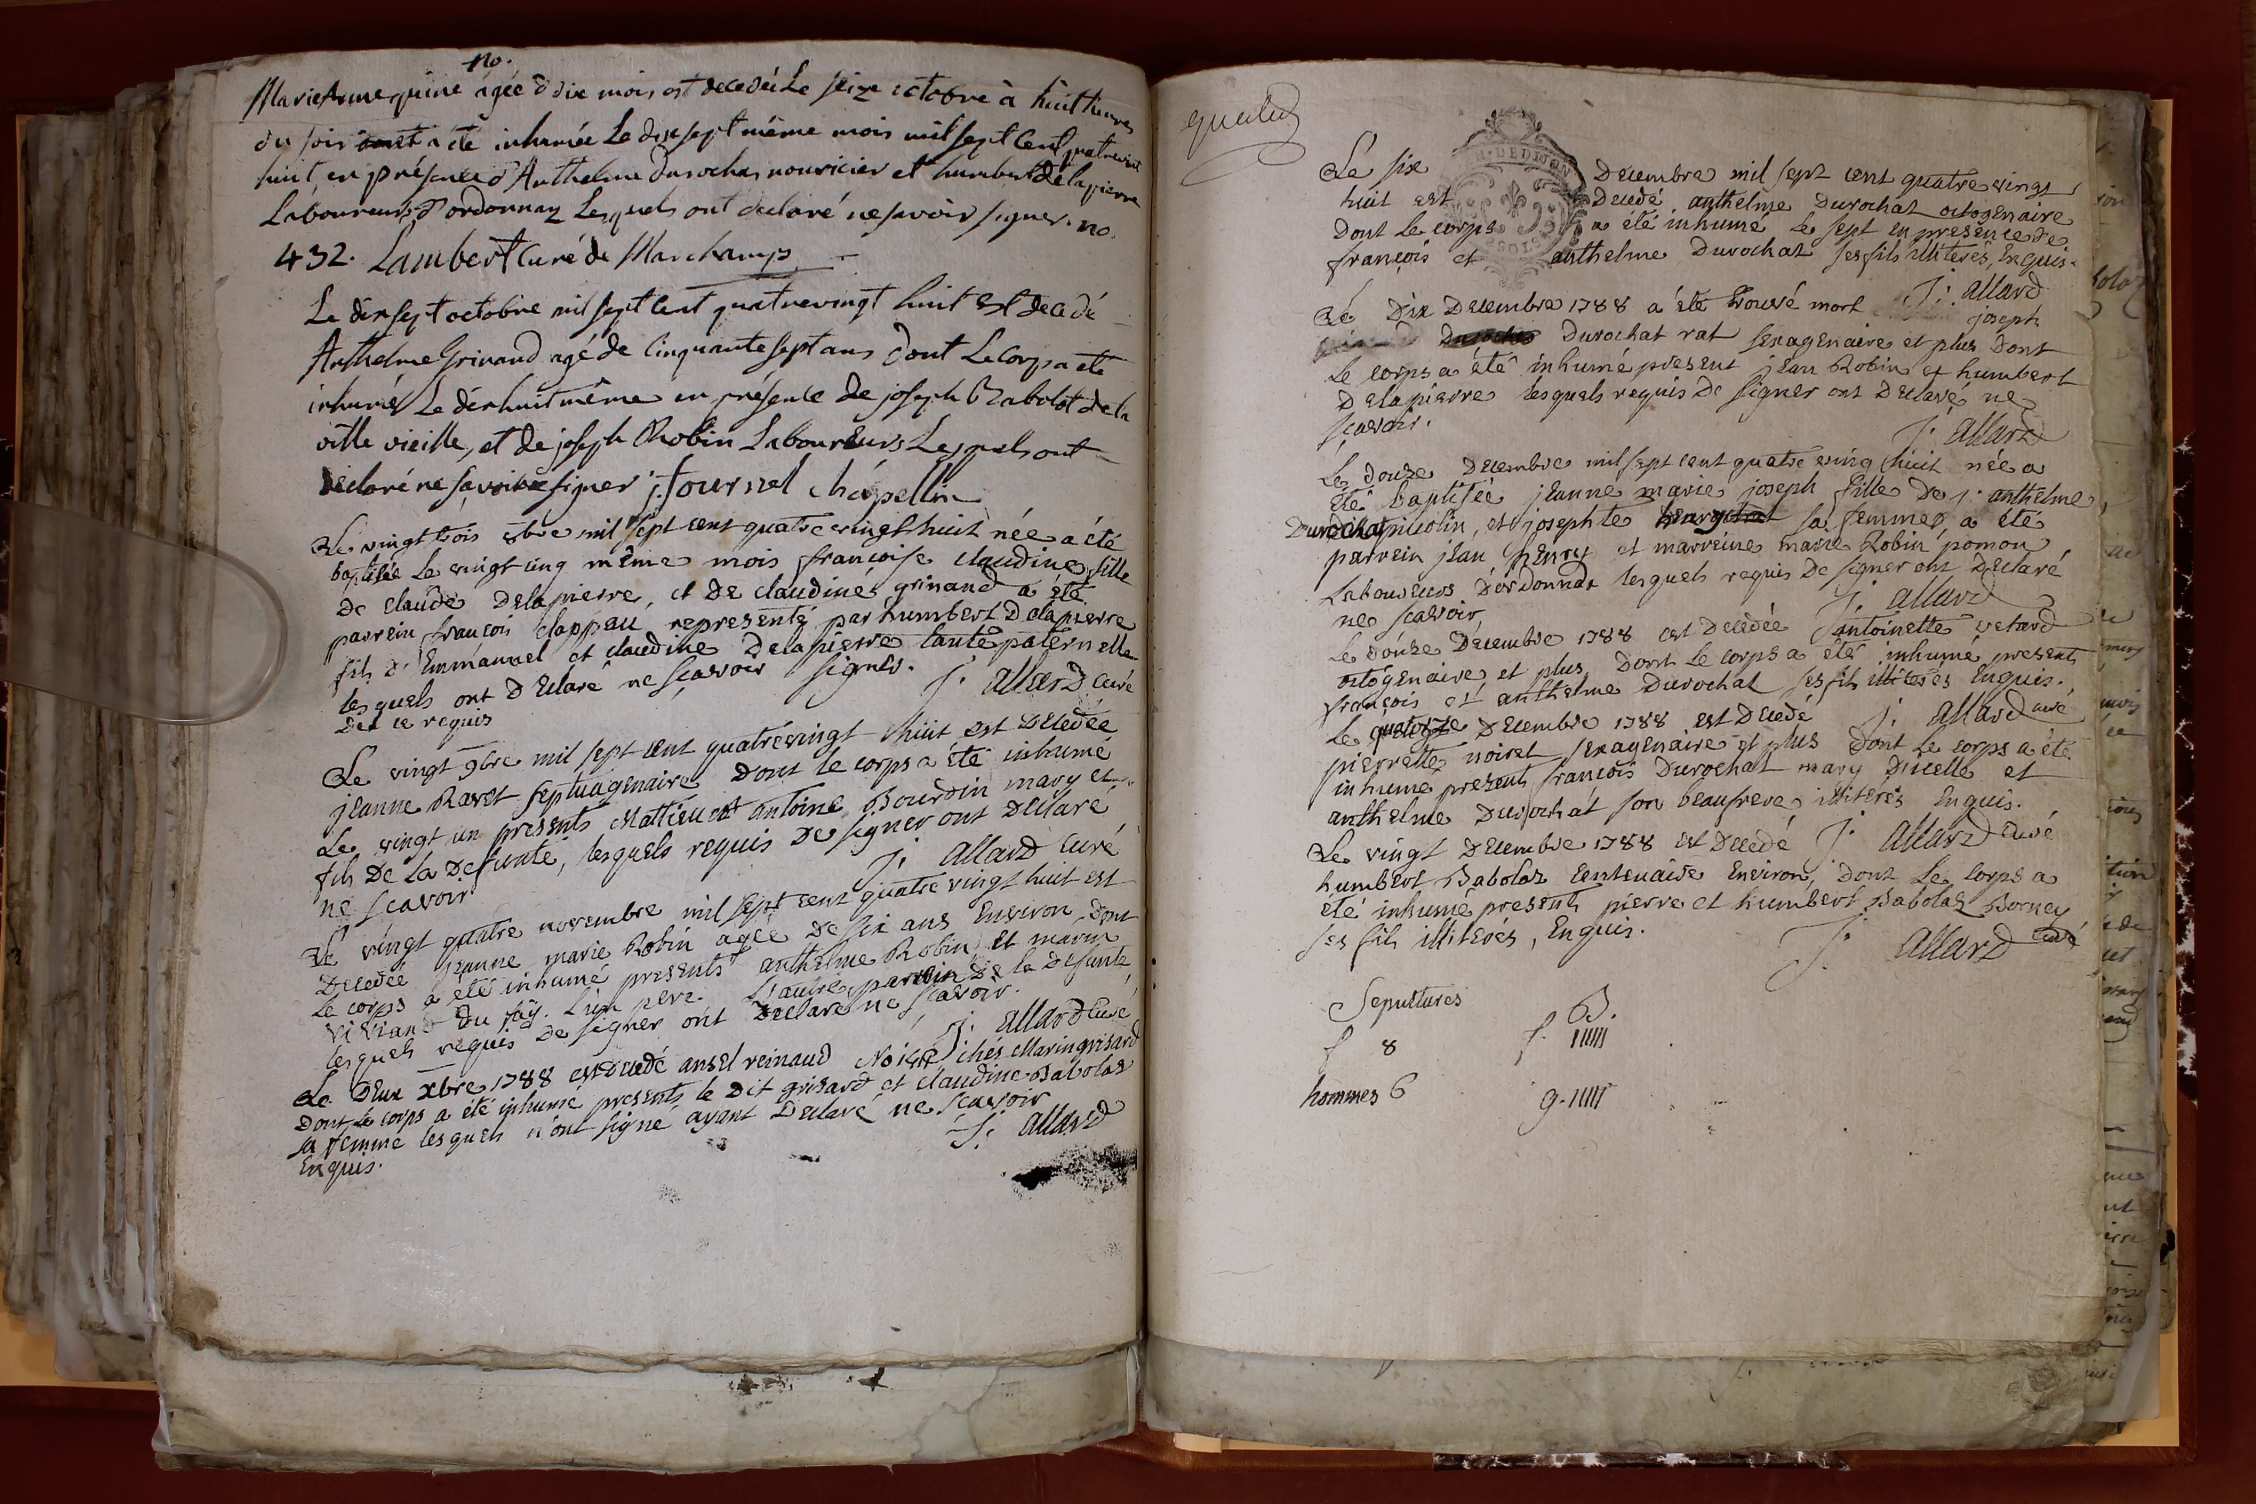 no.
Marie Anne quine agée d dix mois est decedée Le seize octobre à huit heures
du soir et a été inhumée Le dix sept même mois mil sept Cent quatrevint
huit en présence d'Anthelme Durochat nouricier et humbert de la pierre
Laboureurs d'ordonnaz Lesquels ont déclaré ne savoir signer. no.
432. Lambert Curé de Marchamp
Le dix sept octobre mil sept Cent quatrevingt huit Est decedé
Anthelme Grinand agé de Cinquante sept ans dont Le Corps a été
inhumé Le dix huit même en présence de joseph Babolat de la
ville vieille, et de joseph Robin Laboureurs Lesquels ont
declaré ne savoir signer j. fournel chapellin
Le vingt trois 8bre mil sept cent quatre vingt huit née a été
baptisée Le vingt cinq même mois françoise claudine fille
De claude Delapierre, et De claudine grinand a été
parrein françois clappeu representé par humbert Delapierre
fils D'Emmanuel et claudine Delapierre tante paternelle
lesquels ont Declaré ne sçavoir signer.
De ce requis J. allard curé
Le vingt 9bre mil sept cent quatrevingt huit est Decedée
jeanne Ravet septuagenaire Dont le corps a été inhumé
Le vingt un presents Mathieu et antoine Bourdin mary et
fils De La Defunte, lesquels requis De signer ont Declaré
ne sçavoir J. allard curé
Le vingt quatre novembre mil sept cent quatre vingt huit est
Decedée jeanne marie Robin agée De six ans Environ Dont
Le corps a été inhumé presents anthelme Robin et marin
Viviand Du fay. L'un pere L'autre parrein De la Defunte
lesquels requis De signer ont Declaré ne sçavoir.
J. allard curé
Le Deux xbre 1788 est Decedé ansel reinaud chés Marin grisard
Dont le corps a été inhumé presents le Dit grisard et claudine Babolat
sa femme lesquels n'ont signé ayant Declaré ne sçavoir
Enquis. J. allard
Le six Decembre mil sept cent quatre vingt
huit est Decedé anthelme Durochat octogenaire
Dont Le corps a été inhumé Le sept en presence de
françois et anthelme Durochat ses fils illiterés, Enquis.
J. allard
Le Dix Decembre 1788 a été trouvé mort joseph
Durochat rat sexagenaire et plus Dont
Le corps a été inhumé present jean Robin et humbert
Delapierre lesquels requis De signer ont Declaré ne
sçavoir. J. allard
Le Douze Decembre mil sept cent quatre ving huit née a
été baptisée jeanne marie joseph fille De j. anthelme
Durochat picolin, et josephte sa femme, a été
parrein jean henry et marreine marie Robin pomou
Laboureurs D'ordonnaz lesquels requis De signer ont Declaré
ne sçavoir J. allard
Le Douze Decembre 1788 est Decedée antoinette vetard
octogenaire et plus, Dont Le corps a été inhumé presents
françois et anthelme Durochat ses fils illiterés Enquis.
J. allard curé
Le quatorze Decembre 1788 est Decedé
pierrette noiret sexagenaire et plus Dont Le corps a été
inhumé presents françois Durochat mary Dicelle et
anthelme Durochat son beaufrere, illiterés Enquis.
J. allard curé
Le vingt Decembre 1788 est Decedé
humbert Babolaz Centenaire Environ, Dont Le corps a
été inhumé presents pierre et humbert Babolaz Borney
ses fils illiterés, Enquis. J. allard curé
Sepultures B.
f 8 f. 11111
hommes 6 g. 11111